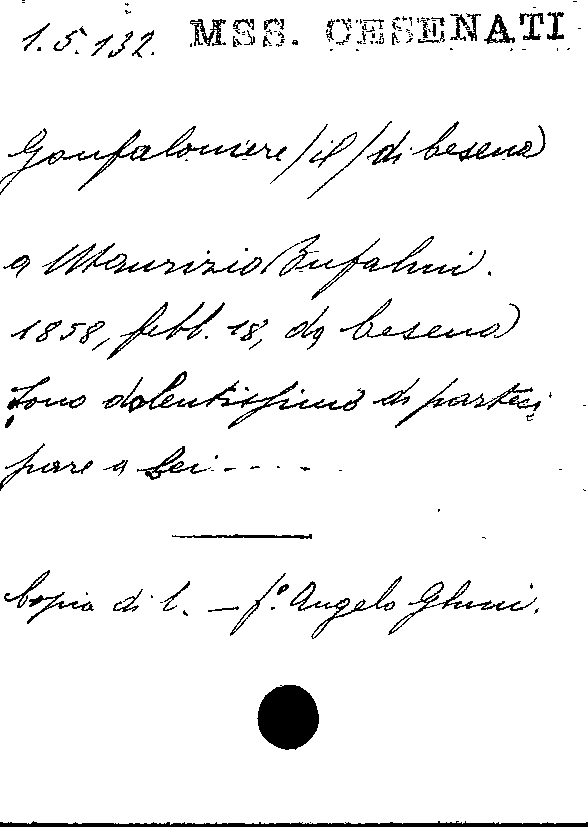 1.5.132. MSS. CESENATI
Gonfaloniere /il/ di Cesena
a Maurizio Bufalini.
1858, febb. 18, da Cesena
Sono dolentissimo di parteci
pare a Lei - - - -
Copia di l. — f.º Angelo Ghini.